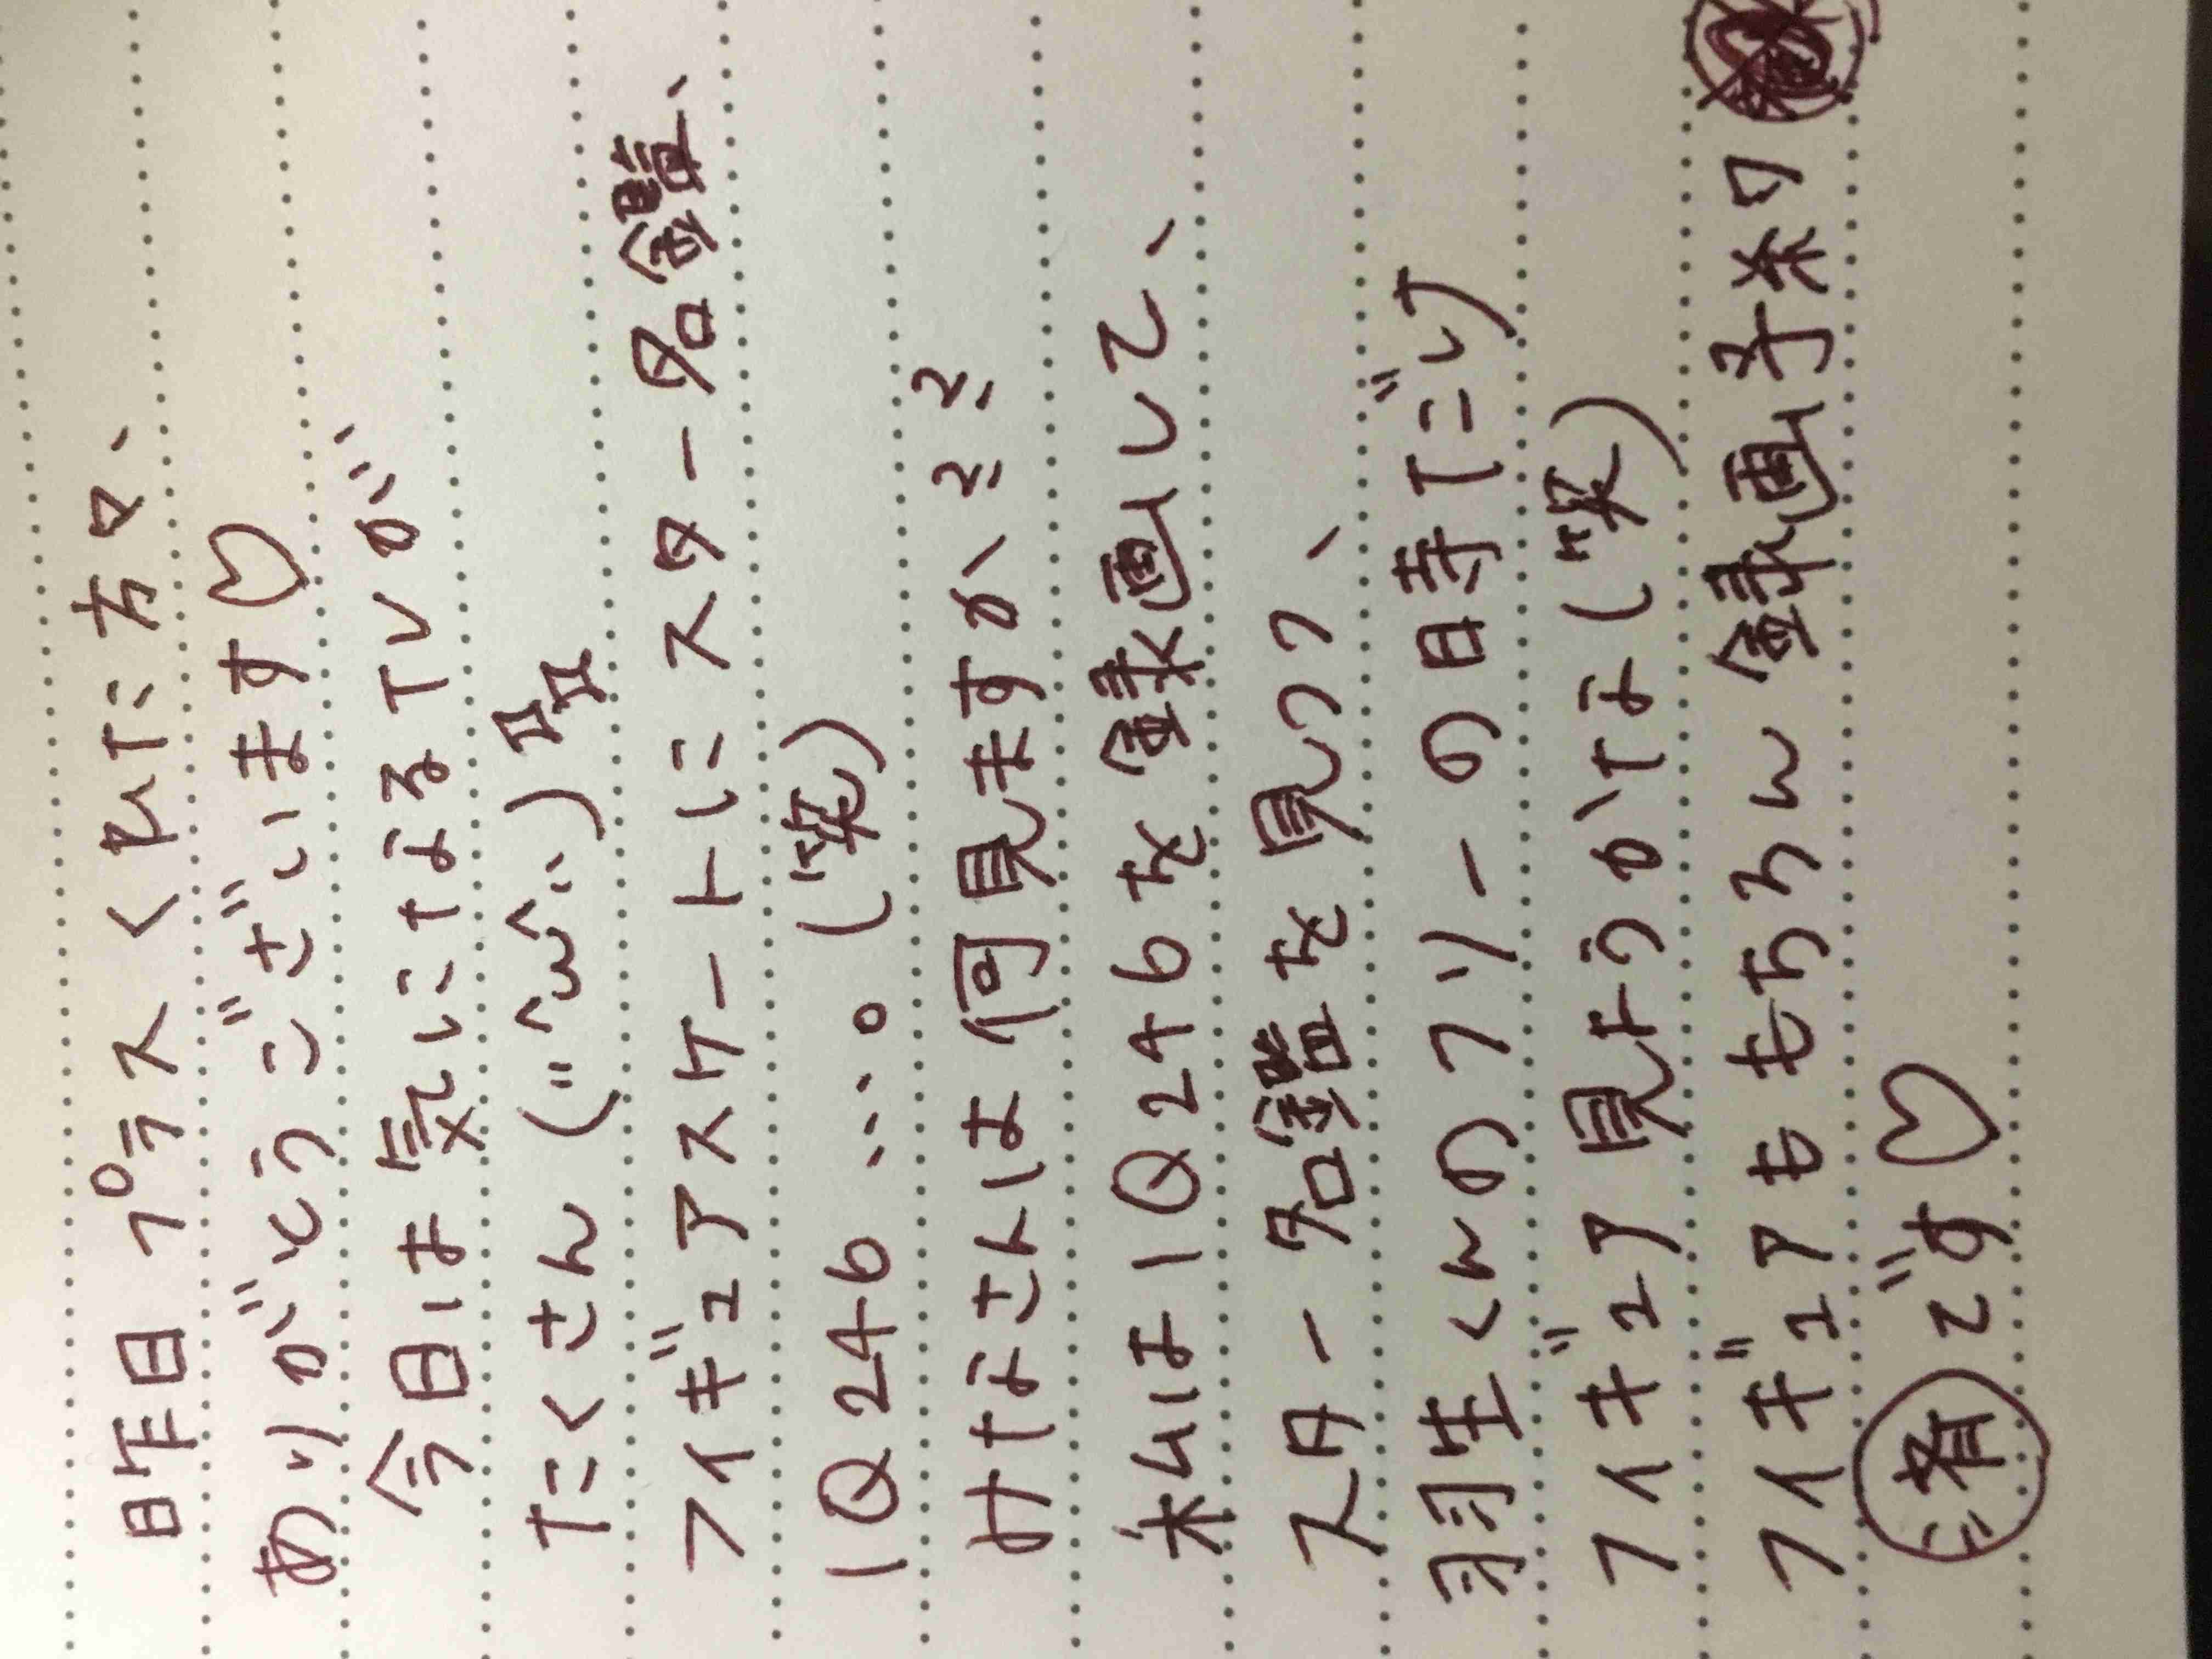 昨日プラスくれた方々、
ありがとうございます♡
今日は気になるTVが、
たくさん("^ω^..)
フィギュアスケートにスター名鑑、
IQ246…。(笑)
みなさんは何見ますか??
私はIQ246を録画して、
スター名鑑を見つつ、
羽生くんのフリーの時だけ
フィギュア見ようかな(笑)
フィギュアももちろん録画予約
済です♡